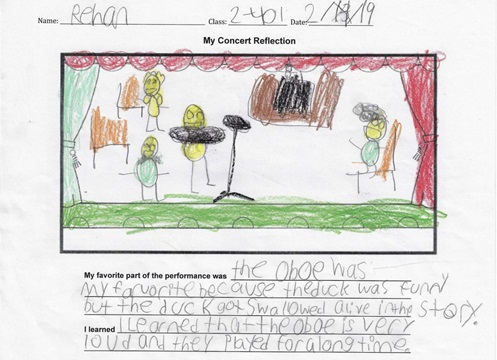 Name: Rehan Class: 2 Date: 2/ /19
My Concert Reflection
My favorite part of the performance was the oboe was
my farvorite because the duck was funny
but the duck got swallowed alive in the story.
I learned I learned that the oboe is very
loud and they played for a long time